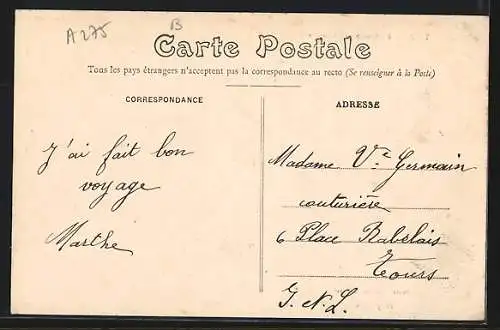 A275
B
Carte Postale
Tous les pays étrangers n'acceptent pas la correspondance au recto (Se renseigner à la Poste)
CORRESPONDANCE
J'ai fait bon
voyage
Marthe
ADRESSE
Madame Vᵉ Germain
couturière
6 Place Rabelais
Tours
I. et L.